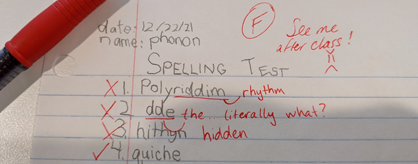 date: 12/22/21
name: phonon
F
See me
after class!
SPELLING TEST
X 1. Polyriddim rhythm
X 2. dde the literally what?
X 3. hithyn hidden
✓ 4. quiche